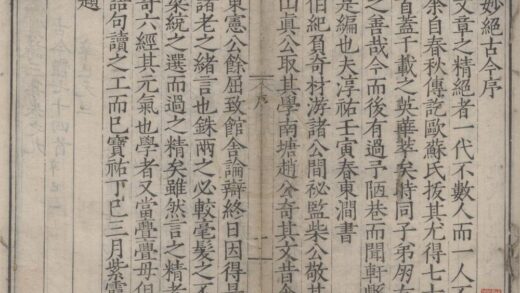 妙絕古今序
文章之精絕者一代不數人而一人不
余自春秋傳訖歐蘇氏拔其尤得七十
首蓋千載之英華萃矣時同子弟朋友
之善哉今而後有過予陋巷而聞軒懸
是編也夫淳祐壬寅春東澗書
伯紀負奇材游諸公間祕監柴公敬其
山真公取其學南塘趙公奇其文昔
序
二
東憲公餘屈致館舍論辯終日因得是
諸老之緒言也銖兩之必較毫髮之不
梁統之選而過之精矣雖然言之精者
奇六經其元氣也學者又當亹亹毋但
語句讀之工而已寶祐丁巳三月紫霞
題